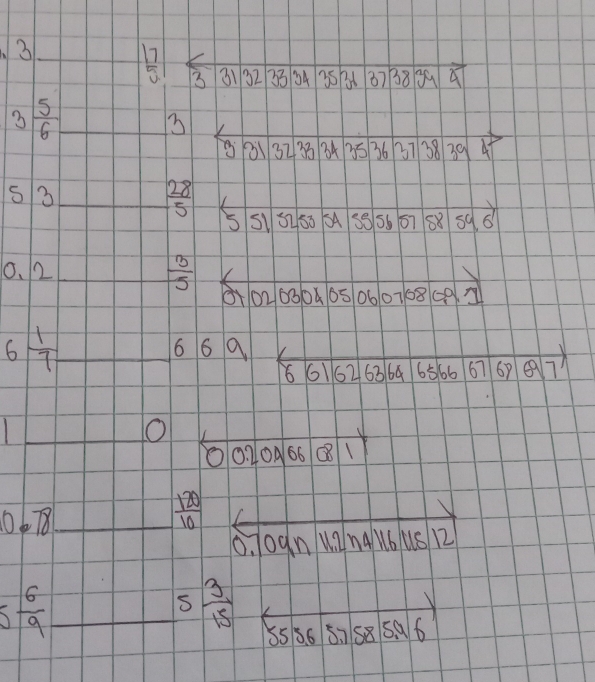 3 ______ 17/5 3 31 32 33 34 35 36 37 38 39 4
3 5/6 ______ 3 3 31 32 33 34 35 36 37 38 39 4
5 3 ______ 28/5 5 51 52 53 54 55 56 57 58 59 6
0.2 ______ 3/5 01 02 03 04 05 06 07 08 09 1
6 1/7 ______ 6 6 9 6 61 62 63 64 65 66 67 68 69 7
1 ______ 0 0 0.2 04 66 08 1
0.78 ______ 120/10 12
5 6/9 ______ 5 3/15 55 5.6 5.7 58 5.9 6